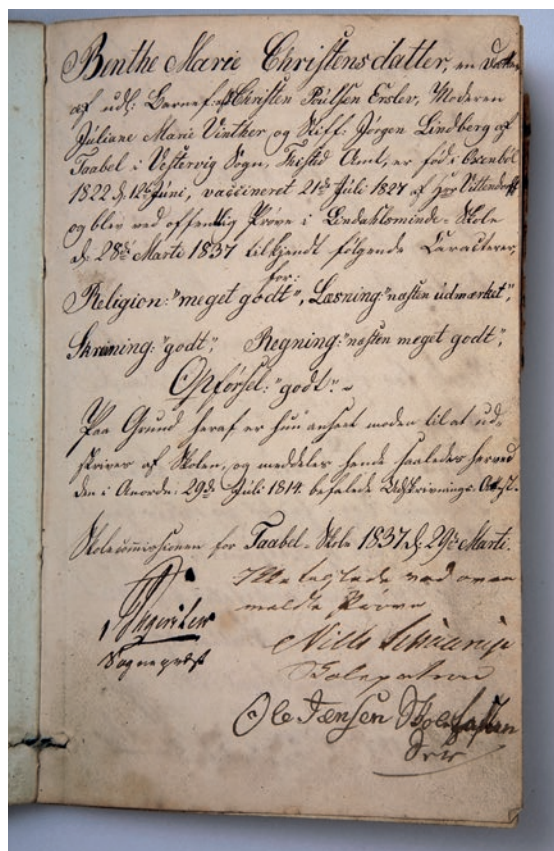 Benthe Marie Christensdatter, en Datter
af udl: Christen Poulsen Erslev, Moderen
Juliane Marie Vinther, og Stiff: Jørgen Lindberg af
Taabel i Vestervig Sogn, Thisted Amt, er fød i
1822 d: 12te Juni, vaccineret 21de Juli 1827 af Hør Vittendorff
og blev ved offentlig Prøve i Lindahlsminde-Skole
d: 28de Marti 1837 tilkjendt følgende Caracterer,
for:
Religion: "meget godt", Læsning: "næsten udmærket",
Skrivning: "godt", Regning: "næsten meget godt",
Opførsel: "godt".
Paa Grund heraf er hun anseet moden til at ud-
skrives af Skolen, og meddeles hende saaledes herved
den i Anordn: 29de Juli 1814 befalede Udskrivnings-Attest.
Skolecommissionen for Taabel-Skole 1837 d: 29de Marti.
ved oven
meldte Prøve
Sognepræst
Niells
Ole Jensen Skole